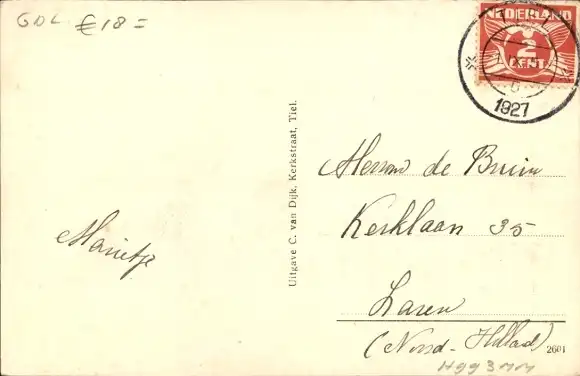 GDL € 18=
NEDERLAND
2
CENT
1927
Uitgave C. van Dijk, Kerkstraat, Tiel.
Marietje
Herman de Bruin
Kerklaan 35
Laren
(Noord-Holland)
2601
H993MM